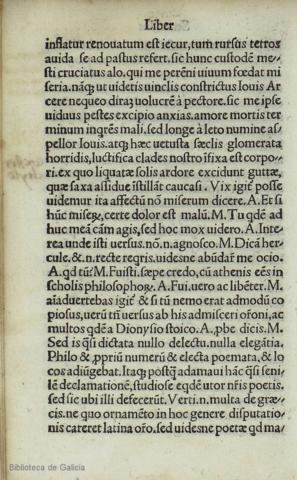 Liber
inflatur renouatum est iecur, tum rursus tetros
auida se ad pastus refert. sic hunc custodē me-
sti cruciatus alo. qui me perēni uiuum fœdat mi
seria. nāq; ut uidetis uinclis constrictus Iouis Ar
cere nequeo dirā uolucrē à pectore. sic me ipse
uiduus pestes excipio anxias. amore mortis ter
minum inqrēs mali. sed longe à leto numine as/
pellor Iouis. atq; hæc uetusta sæclis glomerata
horridis, luctifica clades nostro īfixa est corpo/
ri. ex quo liquatæ solis ardore excidunt guttæ,
quæ saxa assidue īstillāt caucasi . Vix igit posse
uidemur ita affectū nō miserum dicere. A. Et si
hūc miserū, certe dolor est malū. M. Tu qdē ad
huc meā cām agis, sed hoc mox uidero. A. Inte
rea unde isti uersus. nō. n. agnosco. M. Dicā her
cule. & n. recte reqris. uidesne abūdar me ocio.
A. qd tū? M. Fuisti. sæpe credo, cū athenis eēs in
scholis philosophoꝝ. A. Fui. uero ac libēter. M.
aīaduertebas igit & si tū nemo erat admodū co
piosus, uerū tn̄ uersus ab his admisceri orōni, ac
multos qdē a Dionysio stoico. A., pbe dicis. M.
Sed is qsi dictata nullo delectu. nulla elegātia.
Philo & ꝓpriū numerū & electa poemata, & lo
cos adiūgebat. Itaq; postq̄ adamaui hāc qsi seni-
lē declamationē, studiose eqdē utor nr̄is poetis.
sed sic ubi illi defecerūt. Verti. n. multa de græ-
cis. ne quo ornamēto in hoc genere disputatio-
nis careret latina orō. sed uidesne poetæ qd ma/
Biblioteca de Galicia